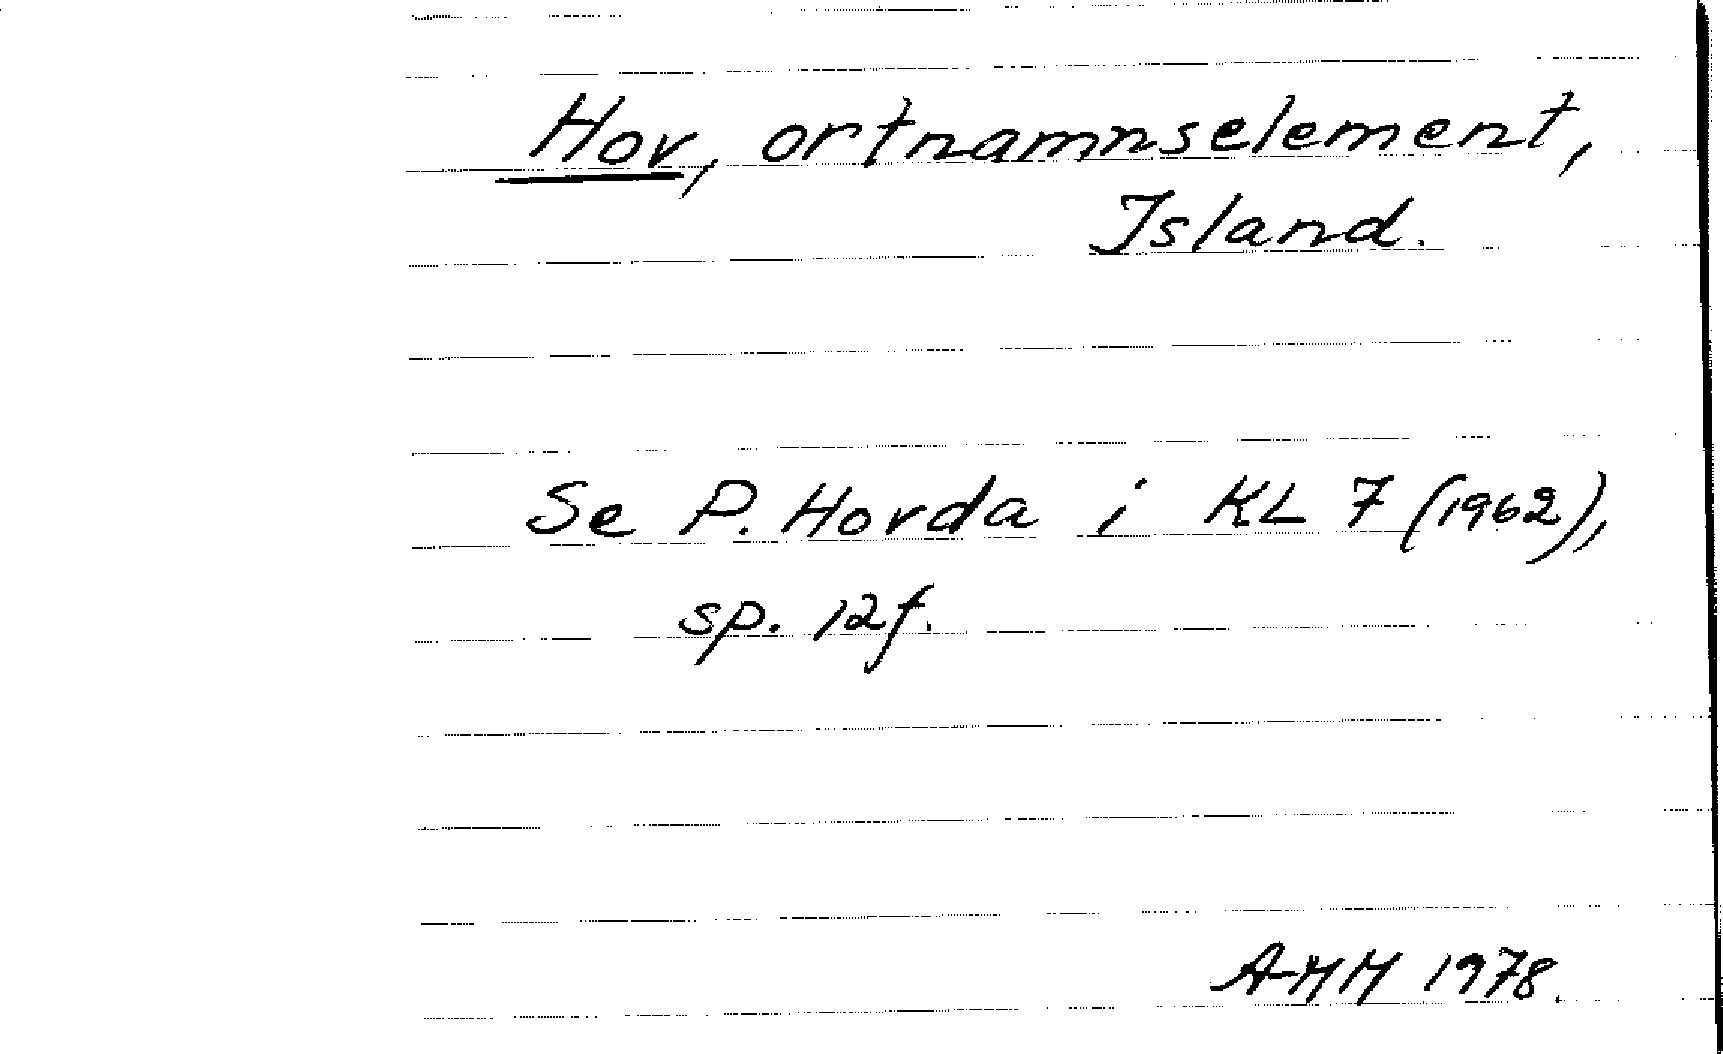 Hov, ortnamnselement,
Island.
Se P. Hovda i KL 7 (1962),
sp. 12f.
AMM 1978.